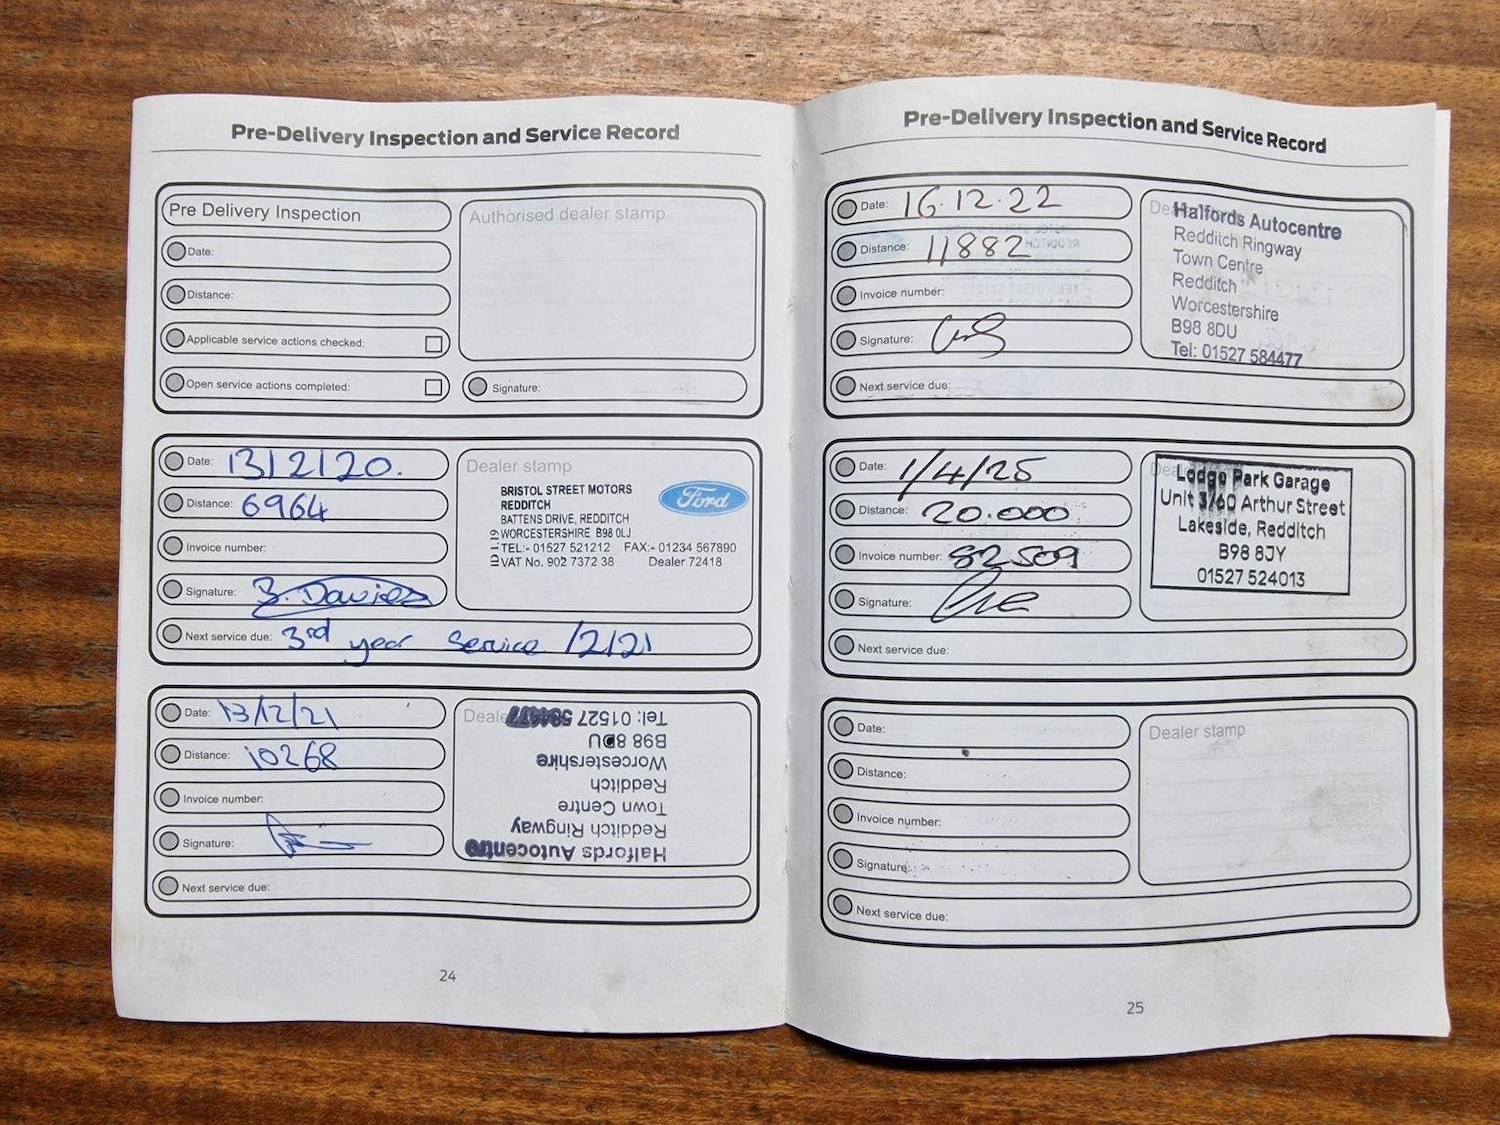 Pre-Delivery Inspection and Service Record
Pre Delivery Inspection
Authorised dealer stamp
Date:
Distance:
Applicable service actions checked:
Open service actions completed:
Signature:
Date: 13/2/20.
Distance: 6964
Invoice number:
Signature: B. Davies
Next service due: 3rd year Service /2/21
Dealer stamp
BRISTOL STREET MOTORS
REDDITCH
BATTENS DRIVE, REDDITCH
WORCESTERSHIRE B98 0LJ
TEL:- 01527 521212 FAX:- 01234 567890
VAT No. 902 7372 38 Dealer 72418
Ford
Date: 13/12/21
Distance: 10268
Invoice number:
Signature:
Next service due:
Halfords Autocentre
Redditch Ringway
Town Centre
Redditch
Worcestershire
B98 8DU
Tel: 01527 584477
24
Pre-Delivery Inspection and Service Record
Date: 16.12.22
Distance: 11882
Invoice number:
Signature:
Next service due:
Halfords Autocentre
Redditch Ringway
Town Centre
Redditch
Worcestershire
B98 8DU
Tel: 01527 584477
Date: 1/4/25
Distance: 20.000
Invoice number: 82509
Signature:
Next service due:
Lodge Park Garage
Unit 3/60 Arthur Street
Lakeside, Redditch
B98 8JY
01527 524013
Date:
Distance:
Invoice number:
Signature:
Next service due:
Dealer stamp
25